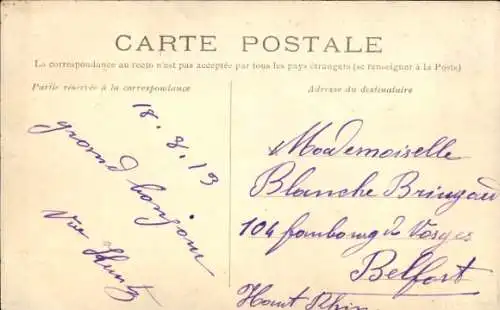 CARTE POSTALE
La correspondance au recto n'est pas acceptée par tous les pays étrangers (se renseigner à la Poste)
Partie réservée à la correspondance
Adresse du destinataire
18.8.13
grand bonjour
Mademoiselle
Blanche
104 faubourg de Vosges
Belfort
Haut Rhin